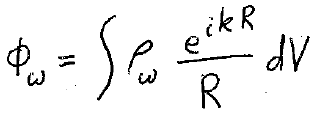 ϕ_ω = ∫ ρ_ω \frac{e^{ikR}}{R} dV